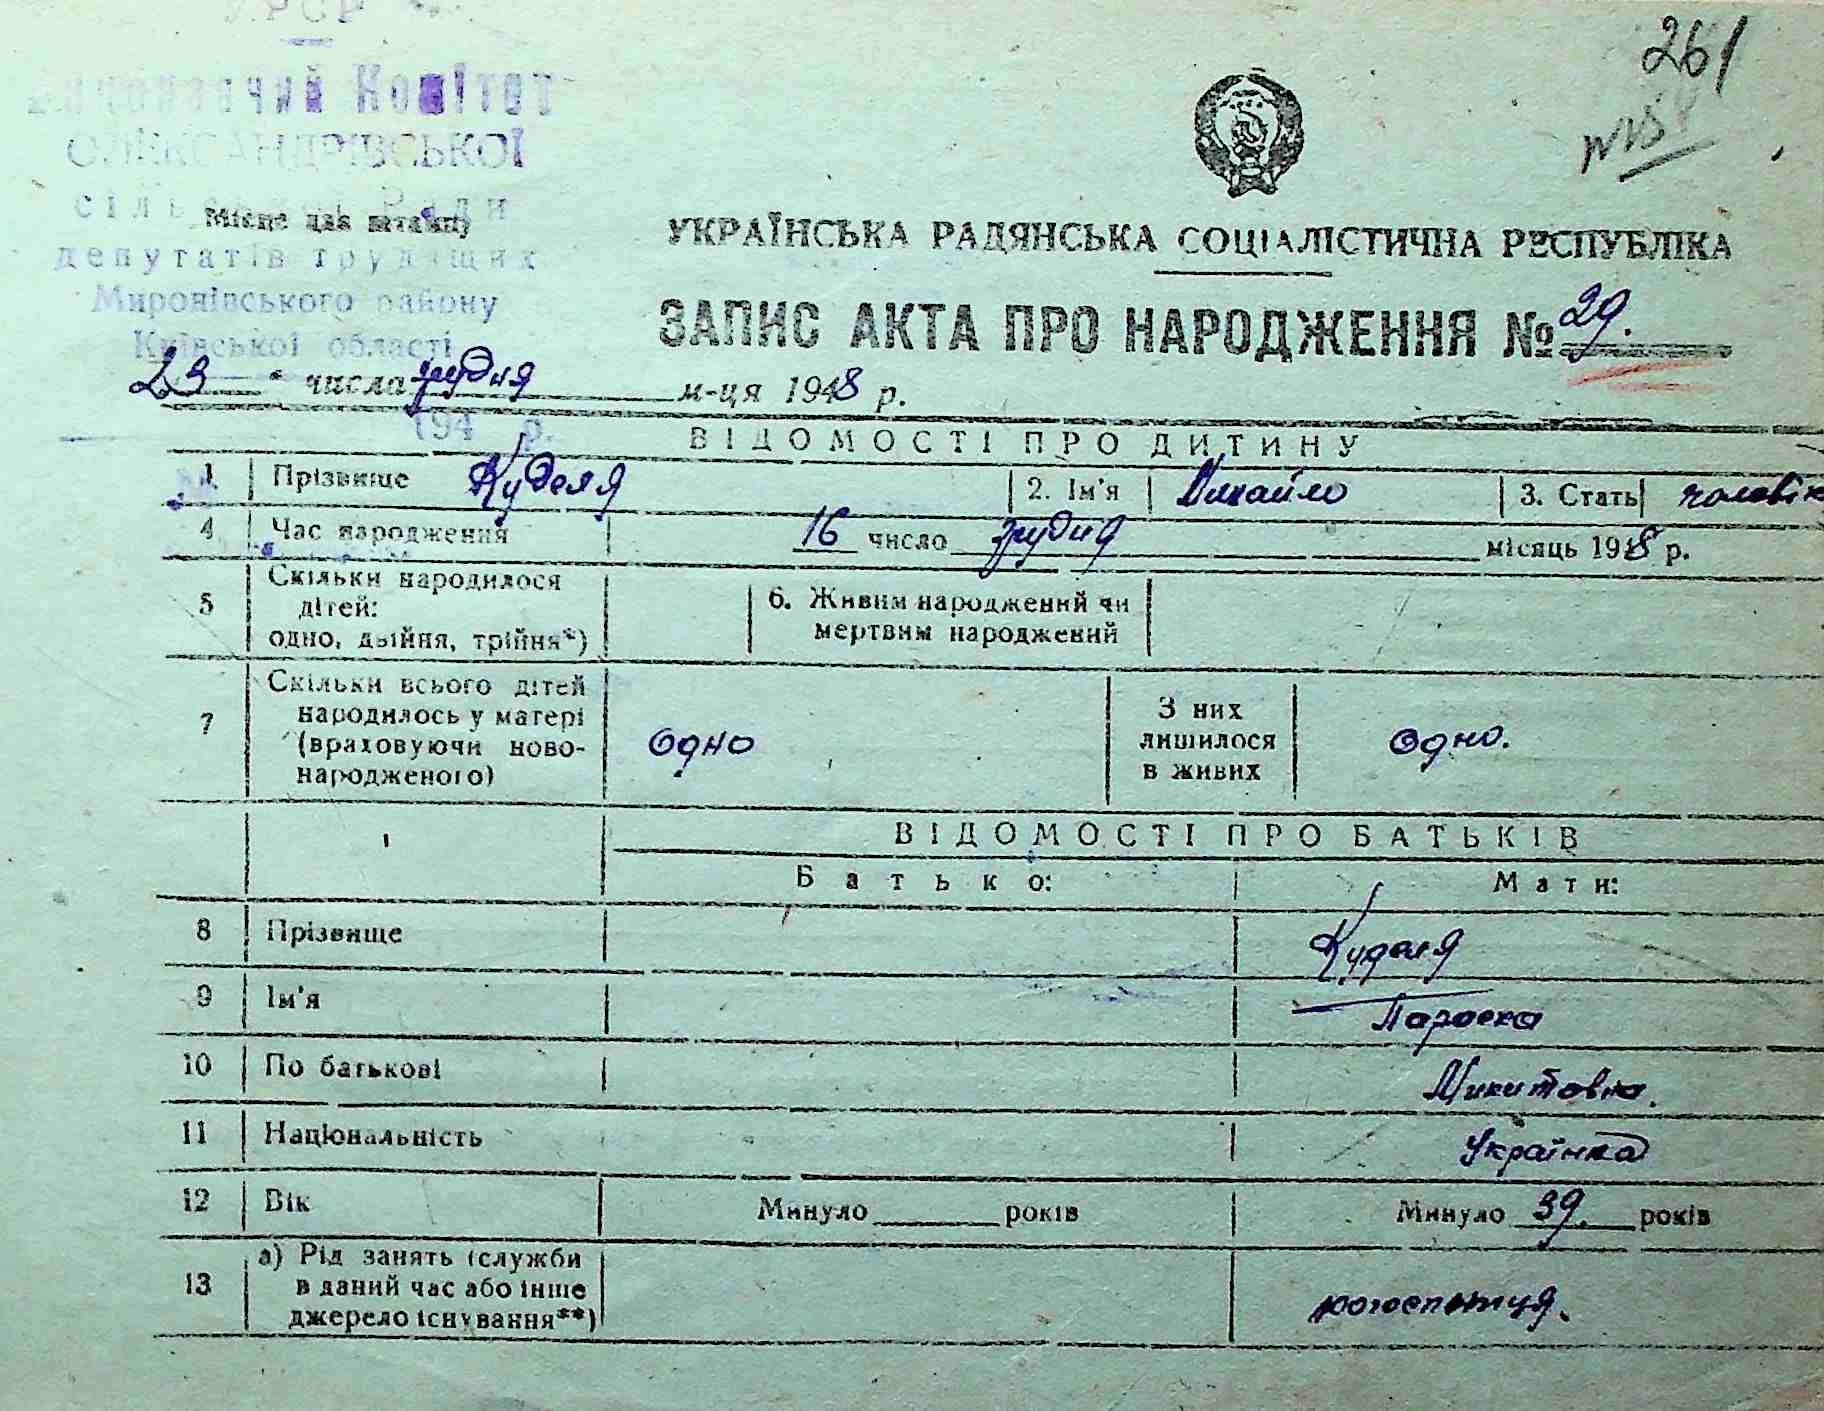 УРСР
261
Виконавчий Комітет
ОЛЕКСАНДРІВСЬКОЇ
сільської Ради
Місце для штампу
депутатів трудящих
Миронівського району
Київської області
194 р.
УКРАЇНСЬКА РАДЯНСЬКА СОЦІАЛІСТИЧНА РЕСПУБЛІКА
ЗАПИС АКТА ПРО НАРОДЖЕННЯ № 29.
23 " числа грудня м-ця 1948 р.
ВІДОМОСТІ ПРО ДИТИНУ
1 Прізвище Куделя 2. Ім'я Михайло 3. Стать чоловік
4 Час народження 16 число грудня місяць 1948 р.
5 Скільки народилося
дітей:
одно, двійня, трійня*)
6. Живим народжений чи
мертвим народжений
7 Скільки всього дітей
народилось у матері
(враховуючи ново-
народженого)
одно
З них
лишилося
в живих
одно.
ВІДОМОСТІ ПРО БАТЬКІВ
Батько: Мати:
8 Прізвище Куделя
9 Ім'я Параска
10 По батькові Микитовна.
11 Національність Українка
12 Вік Минуло років Минуло 39. років
13 а) Рід занять (служби
в даний час або інше
джерело існування**)